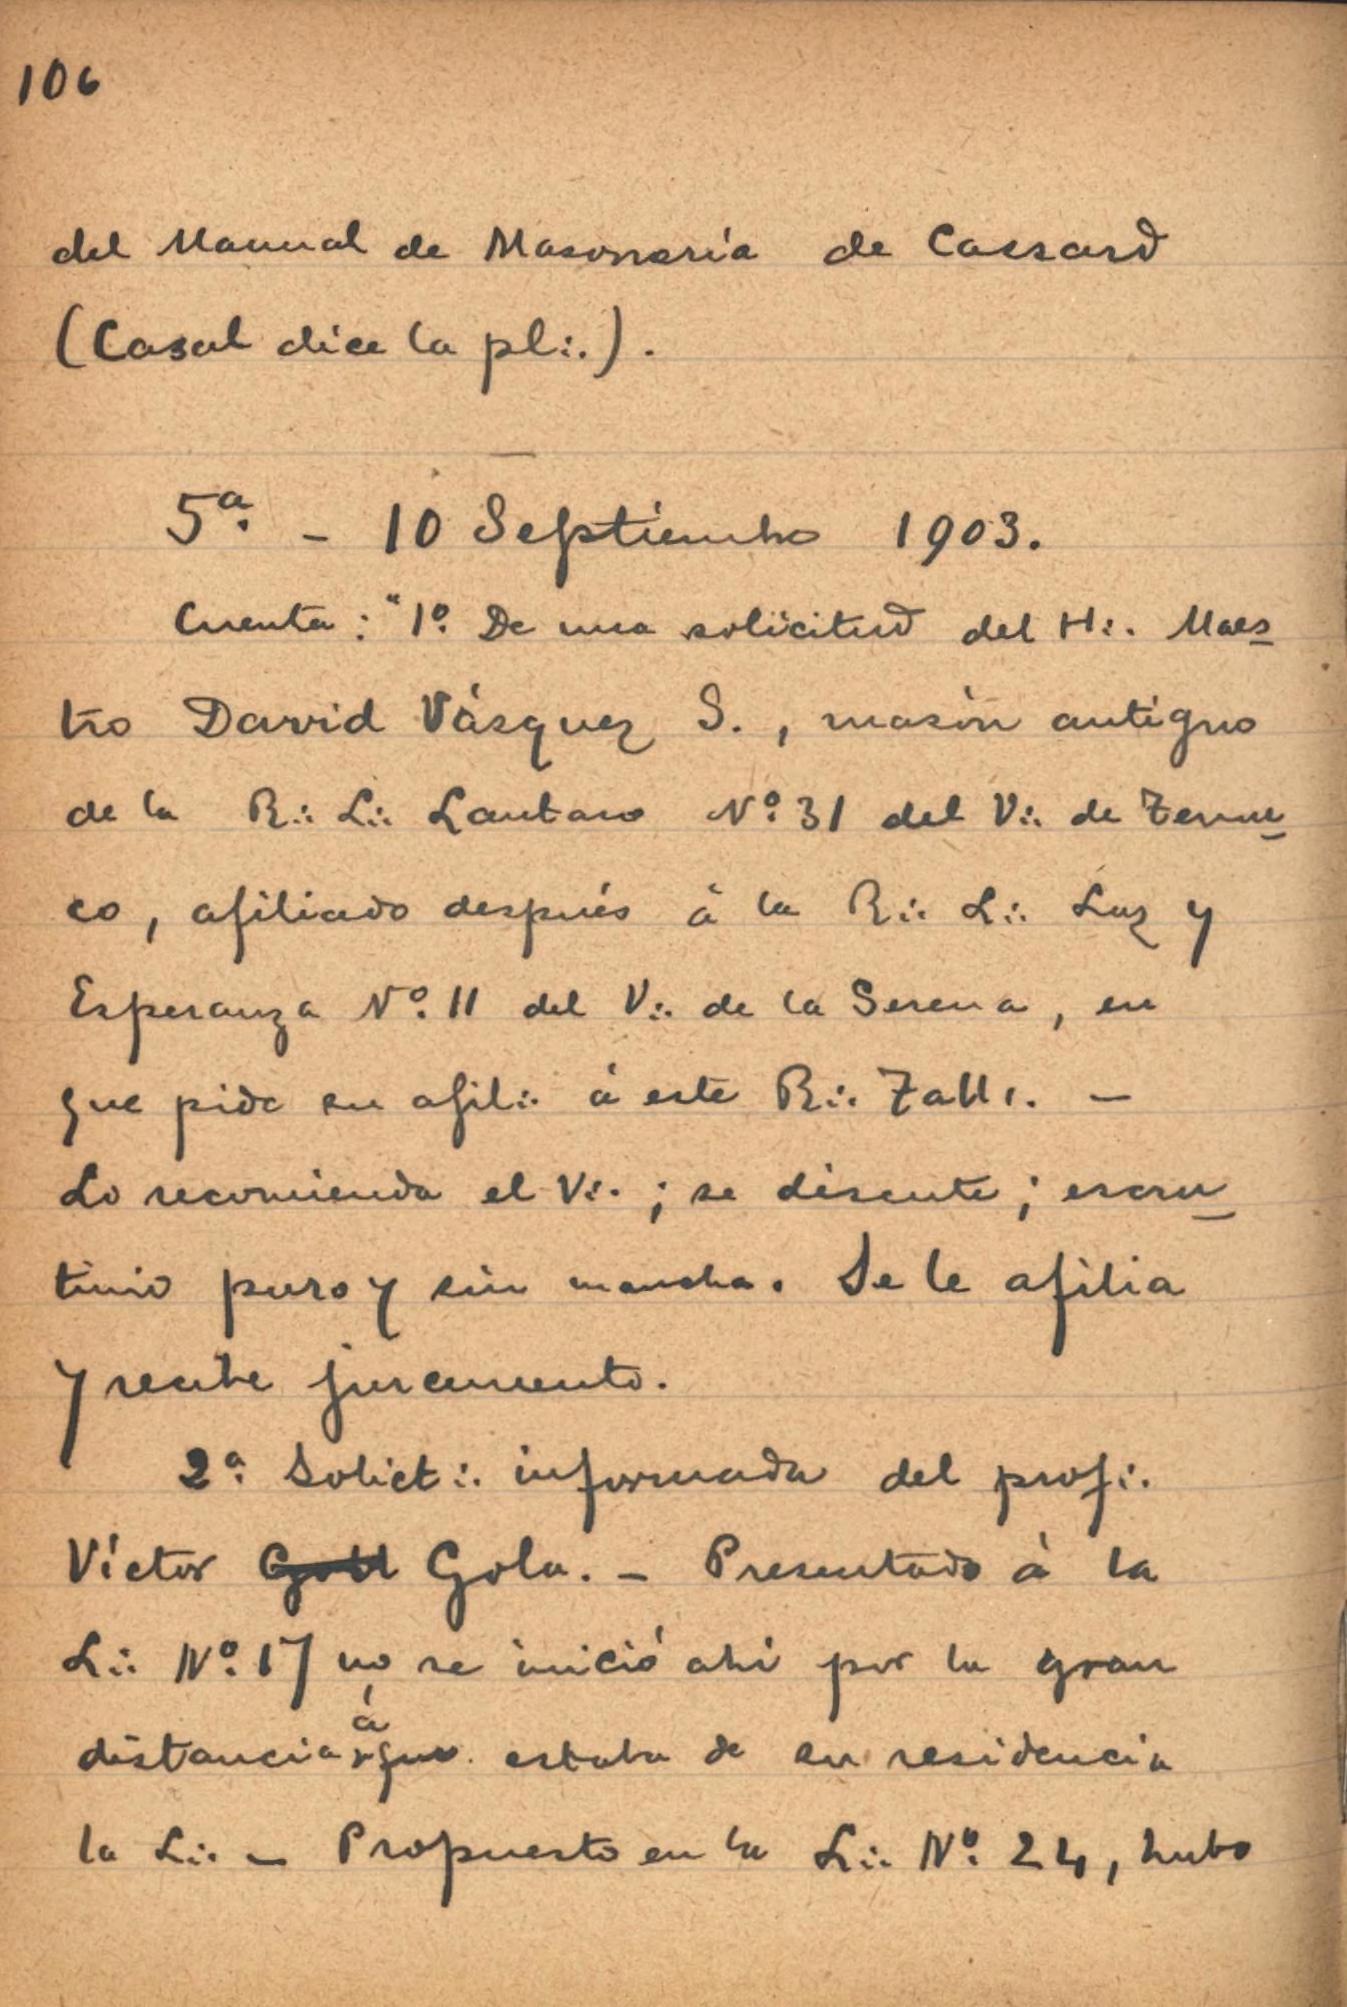 106
del Manual de Masonería de Cassard
(Casal dice la pl∴).
5ª. - 10 Septiembre 1903.
Cuenta: "1º. De una solicitud del H∴ Maes
tro David Vásquez S., masón antiguo
de la R∴ L∴ Lautaro Nº. 31 del V∴ de Temu
co, afiliado después á la R∴ L∴ Luz y
Esperanza Nº. 11 del V∴ de la Serena, en
que pide su afil∴ á este R∴ Tall∴ -
Lo recomienda el V∴; se discute; escru
tinio puro y sin mancha. Se le afilia
y recibe juramento.
2ª. Solict∴ informada del prof∴
Víctor Goll Gola. - Presentado á la
L∴ Nº. 17 no se inició ahí por la gran
distancia á que estaba de su residencia
la L∴ - Propuesto en la L∴ Nº. 24, hubo